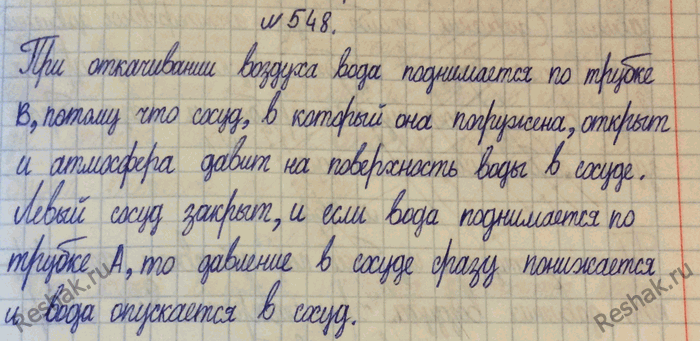 №548.
При откачивании воздуха вода поднимается по трубке
В, потому что сосуд, в который она погружена, открыт
и атмосфера давит на поверхность воды в сосуде.
Левый сосуд закрыт, и если вода поднимается по
трубке А, то давление в сосуде сразу понижается
и вода опускается в сосуд.
Reshak.ru
Reshak.ru